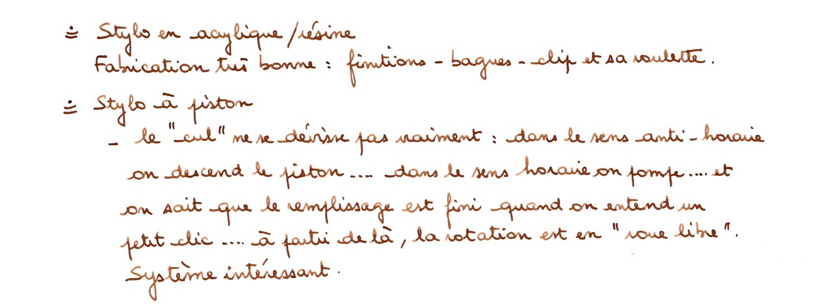 ∸ Stylo en acrylique/résine
Fabrication très bonne : finitions - bagues - clip et sa roulette.
∸ Stylo à piston
- le "cul" ne se dévisse pas vraiment : dans le sens anti-horaire
on descend le piston .... dans le sens horaire on pompe .... et
on sait que le remplissage est fini quand on entend un
petit clic .... à partir de là, la rotation est en "roue libre".
Système intéressant.